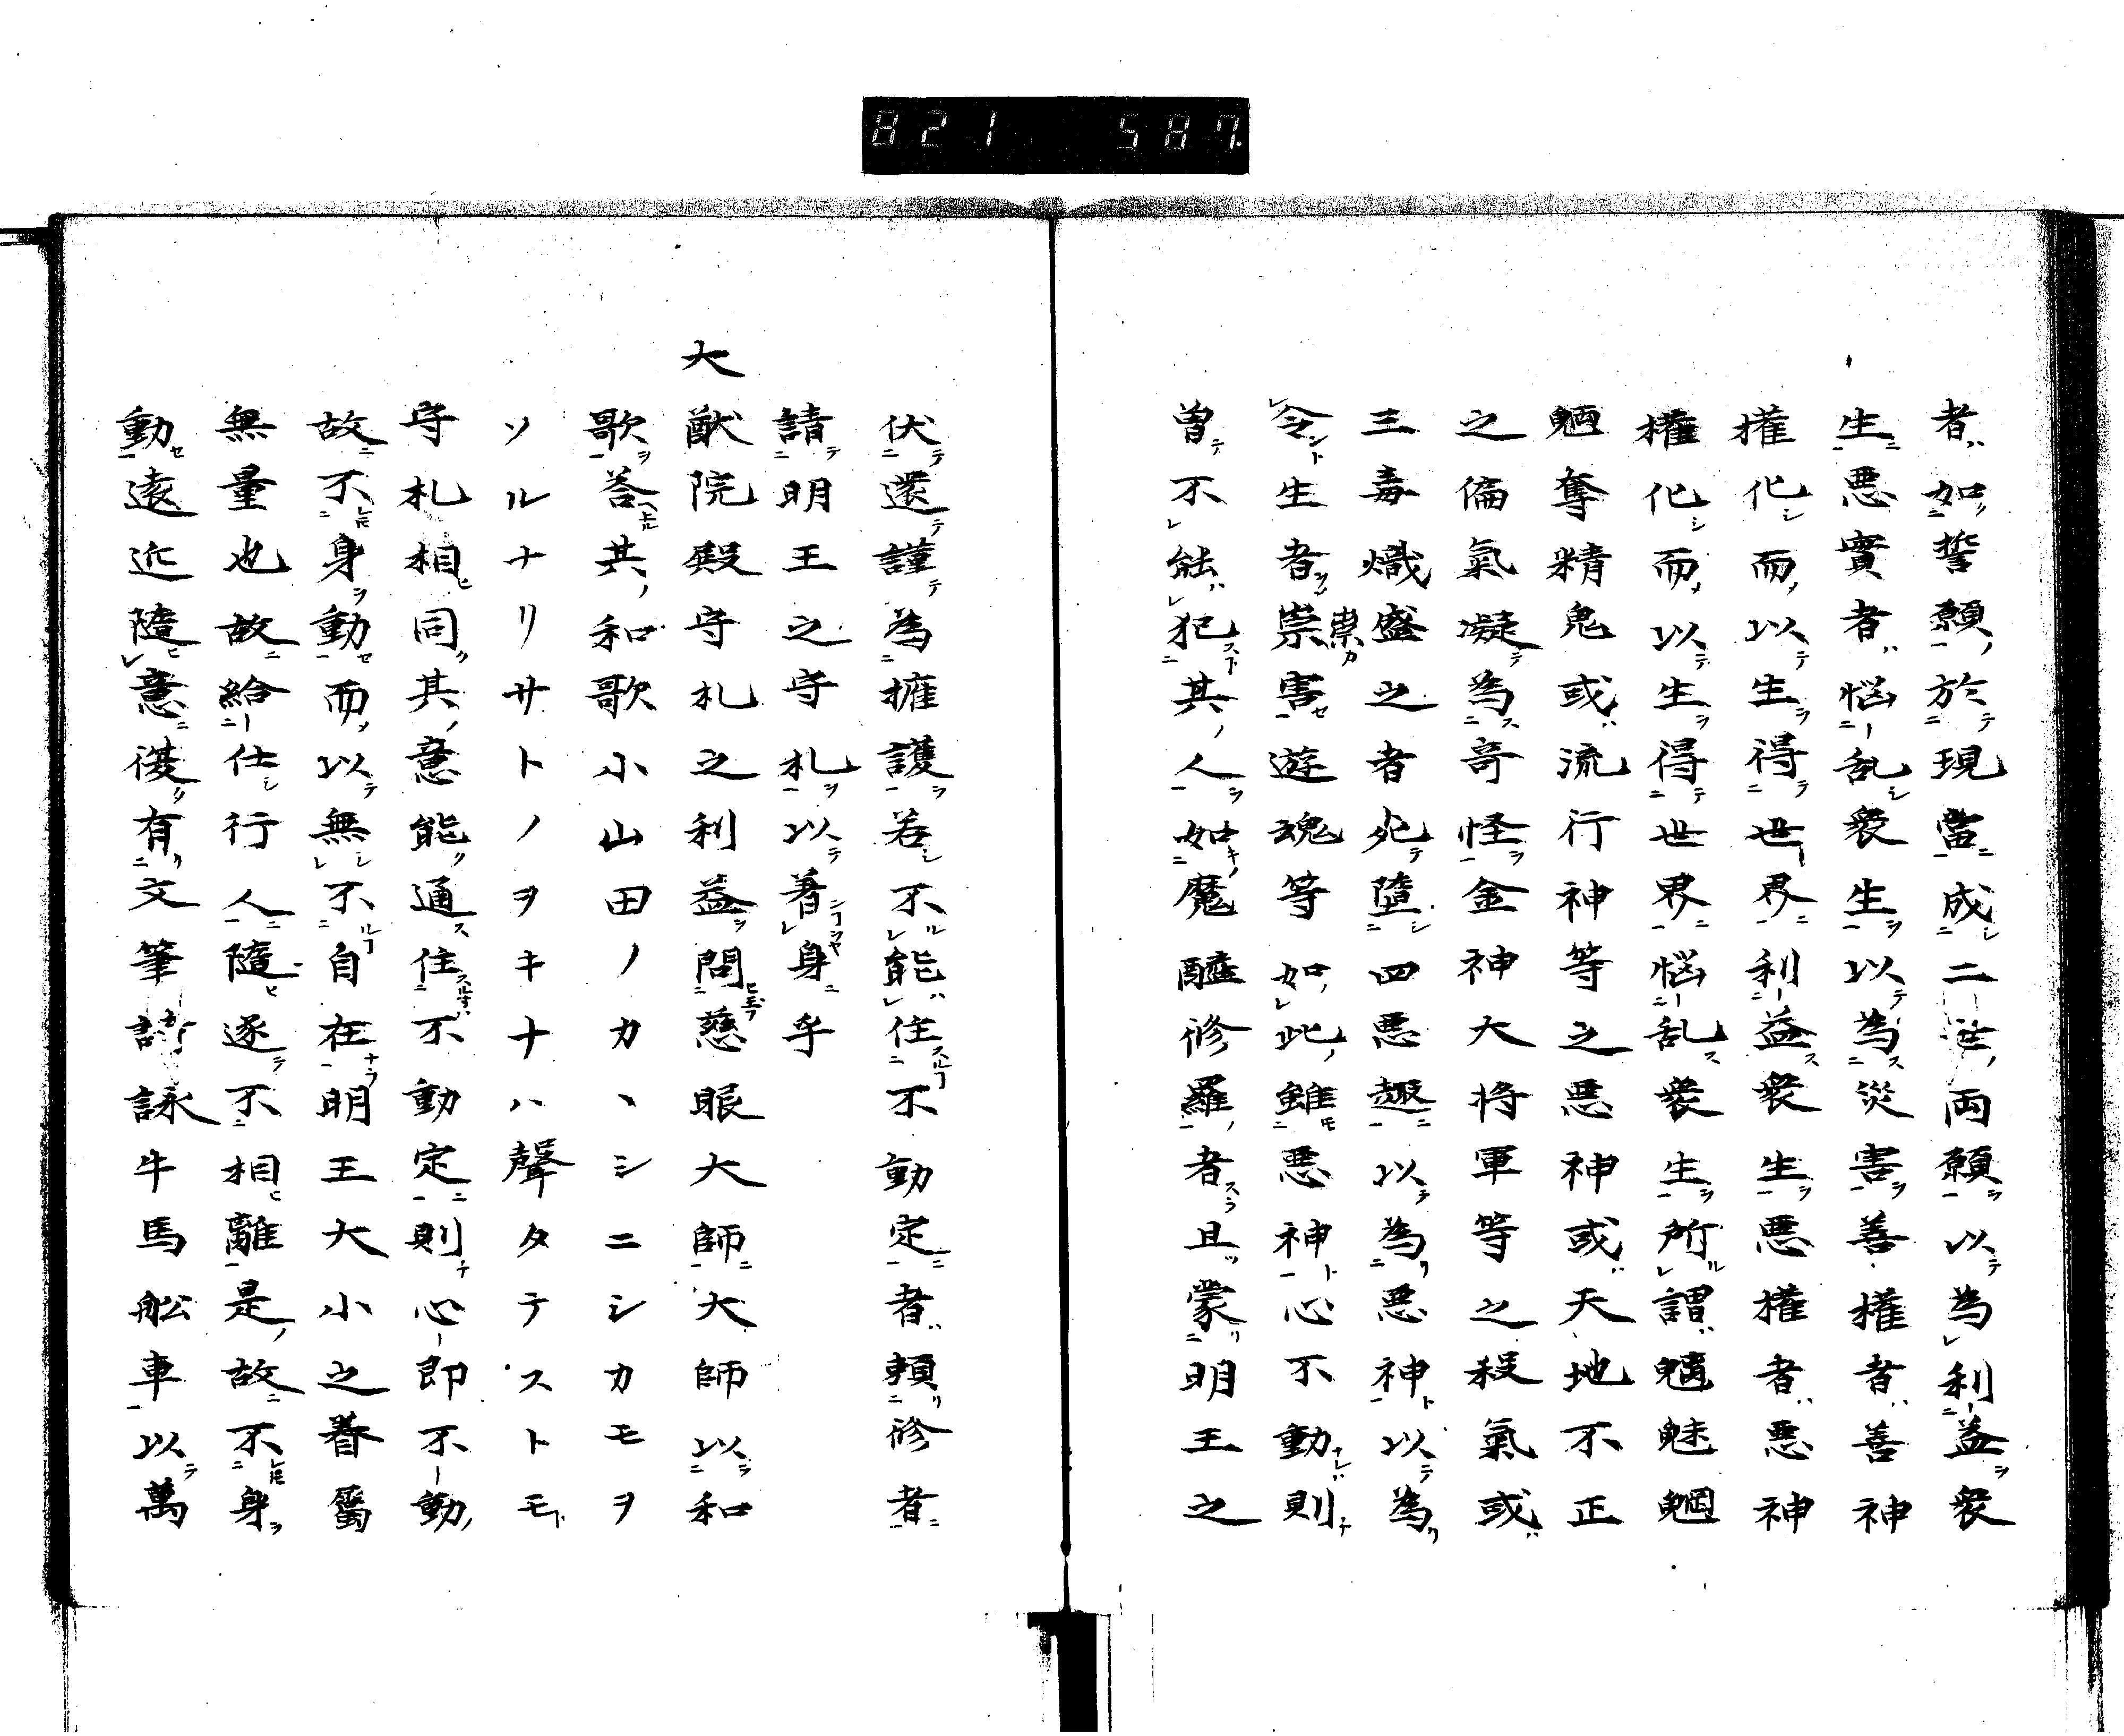 821 587
者如誓願於現當成二世両願以為利益衆
生悪實者悩乱衆生以為災害善権者善神
権化而以生得世界利益衆生悪権者悪神
権化而以生得世界悩乱衆生所謂魑魅魍
魎奪精鬼或流行神等之悪神或天地不正
之偏氣凝為奇怪金神大将軍等之殺氣或
三毒熾盛之者死墮四悪趣以為悪神以為
令生者崇害遊魂等如此雖悪神心不動則
祟カ
曽不能犯其人如魔醯修羅者且蒙明王之
伏還謹為擁護若不能住不動定者頼修者
請明王之守札以著身乎
大猷院殿守札之利益問慈眼大師大師以和
歌答其和歌小山田ノカヽシニシカモヲ
ソルナリサトノヲキナハ聲タテストモ
守札相同其意能通住不動定則心即不動
故不身動而以無不自在明王大小之眷屬
無量也故給仕行人隨逐不相離是故不身
動遠近隨意復有文筆詩詠牛馬舩車以萬